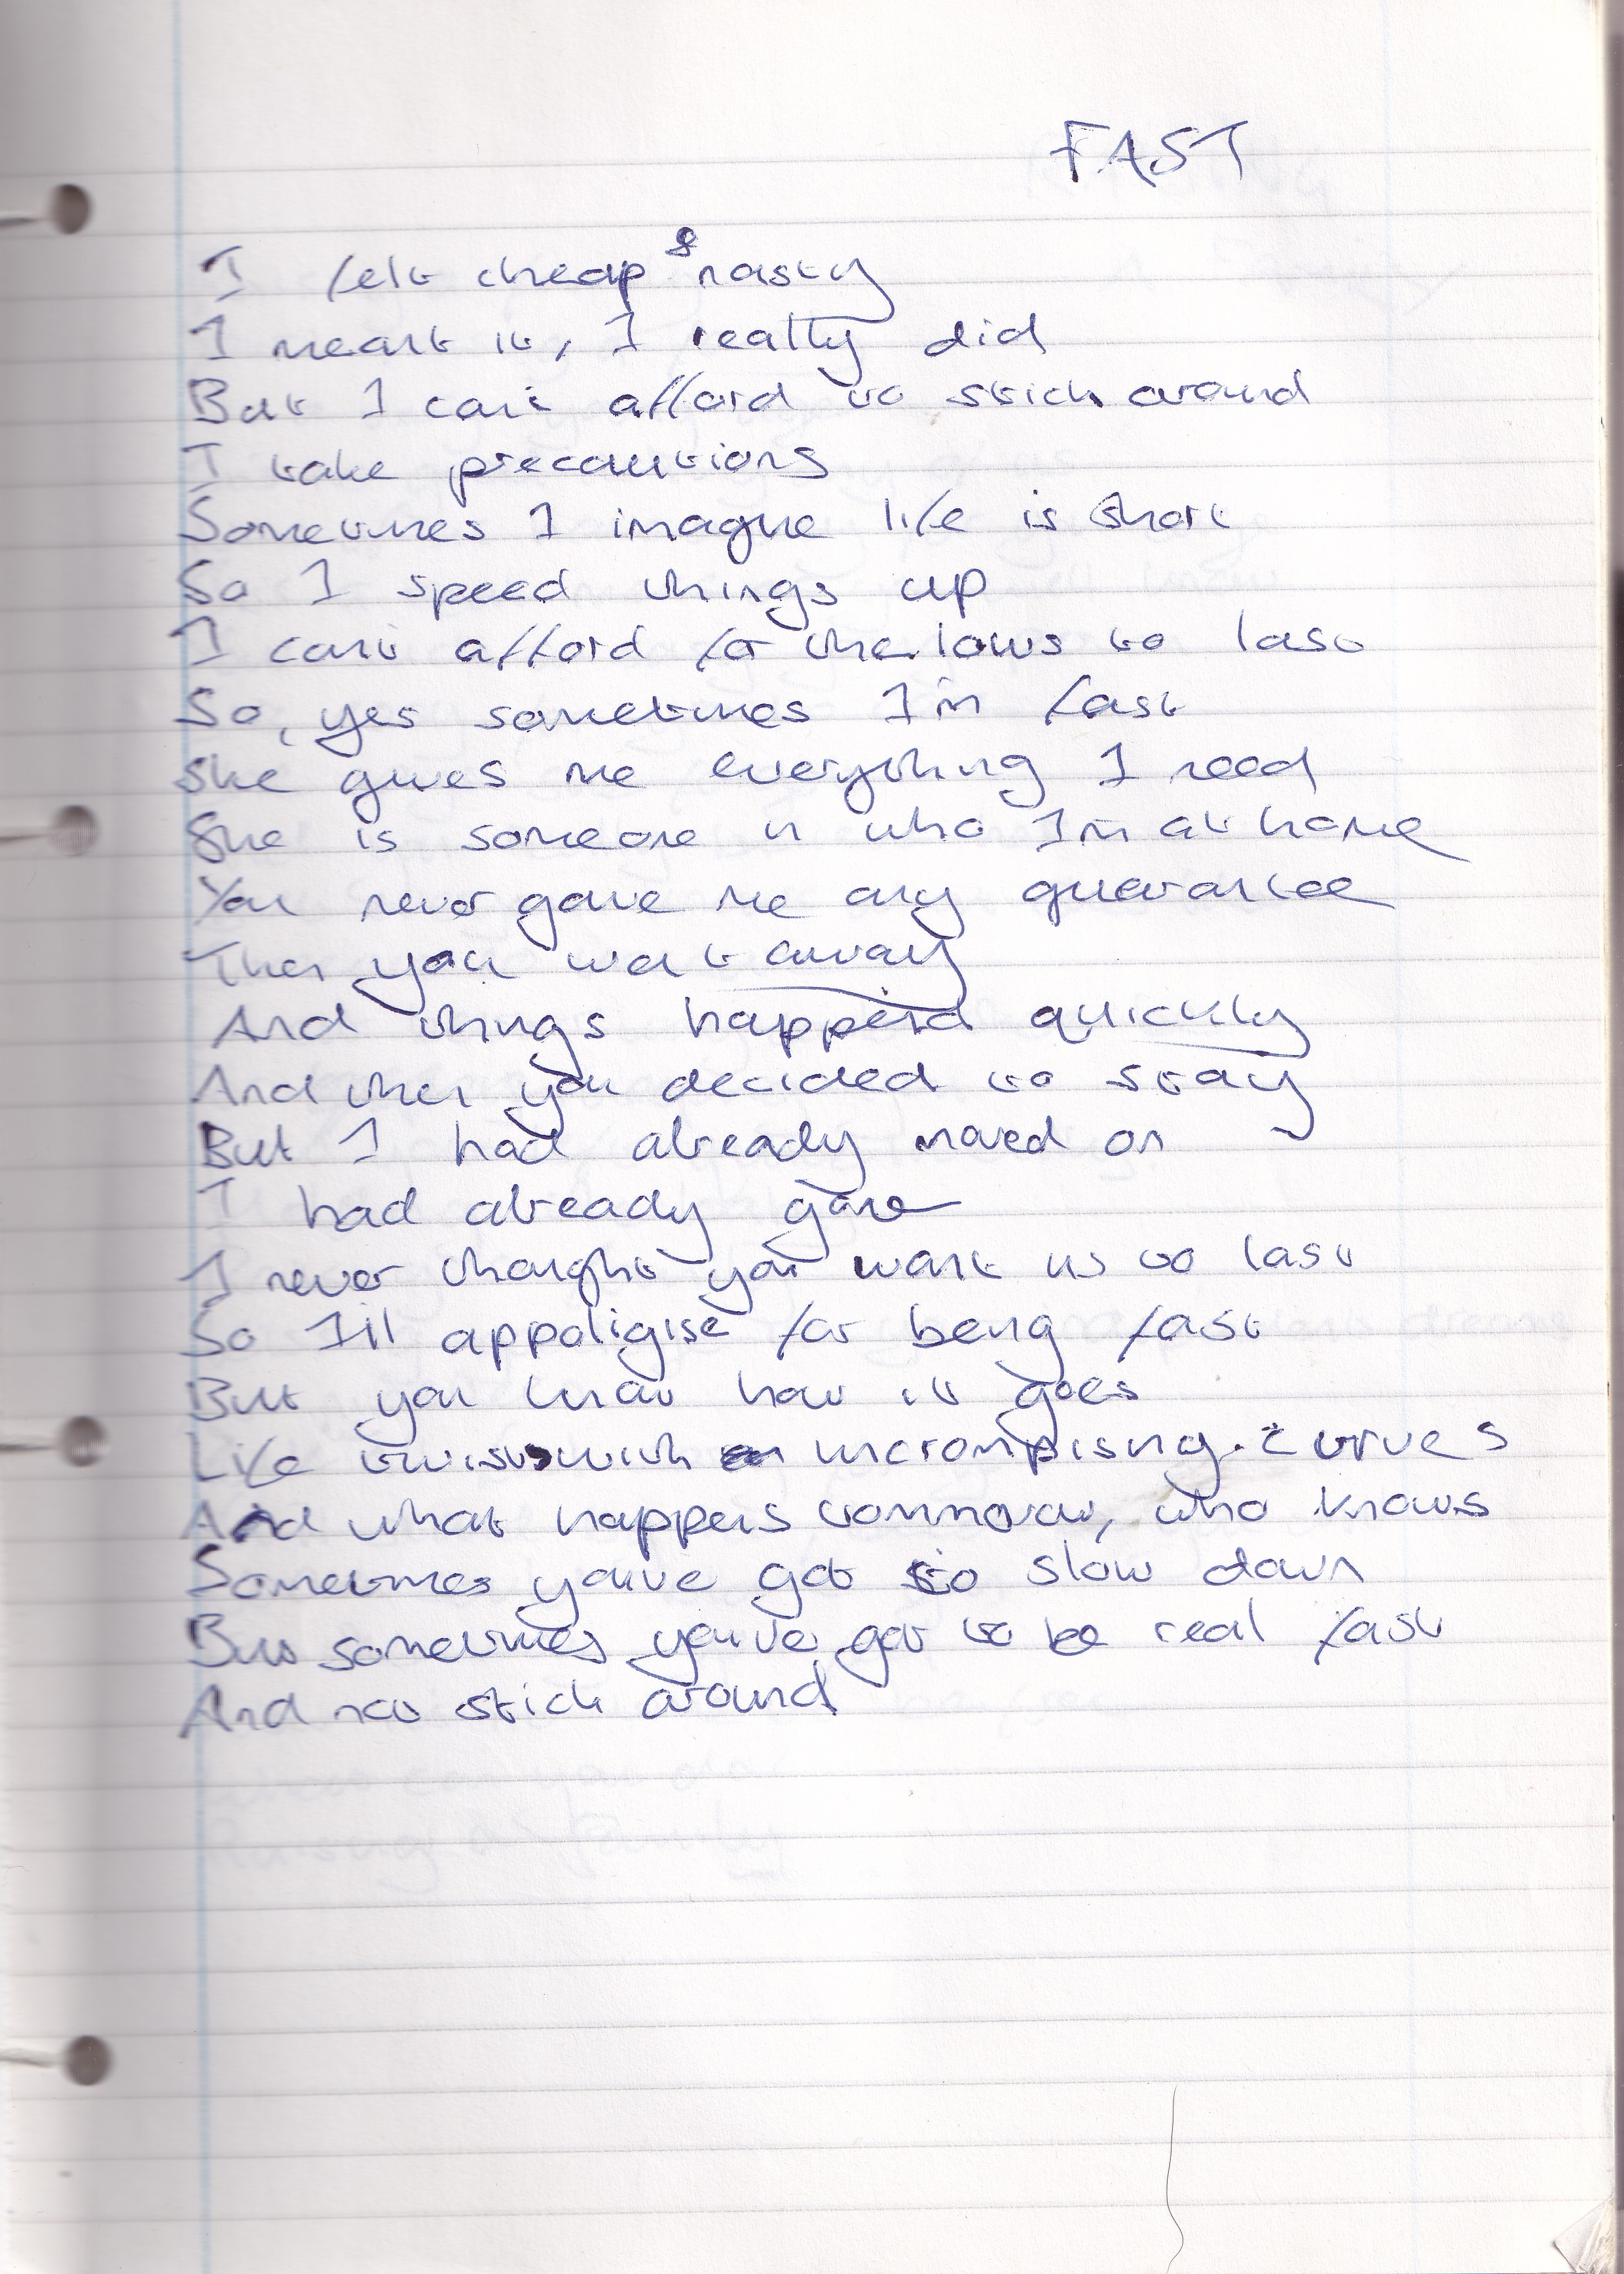 FAST
I felt cheap & nasty
I meant it, I really did
But I can't afford to stick around
I take precautions
Sometimes I imagine life is short
So I speed things up
I can't afford for the lows to last
So, yes sometimes I'm fast
She gives me everything I need
She is someone in who I'm at home
You never gave me any guarantee
Then you went away
And things happend quickly
And then you decided to stay
But I had already moved on
I had already gone
I never thought you want us to last
So I'll appoligise for being fast
But you know how it goes
Life twists with curves
And what happens tommorow, who knows
Sometimes you've got to slow down
But sometimes you've got to be real fast
And not stick around